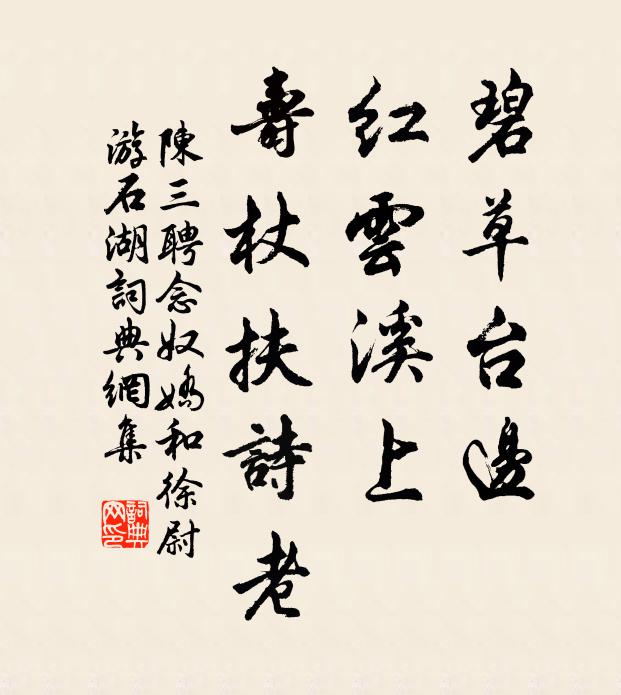 碧草台邊
紅雲溪上
壽杖扶詩老
陳三聘念奴嬌和徐尉
游石湖詞典網集
詞典
网印